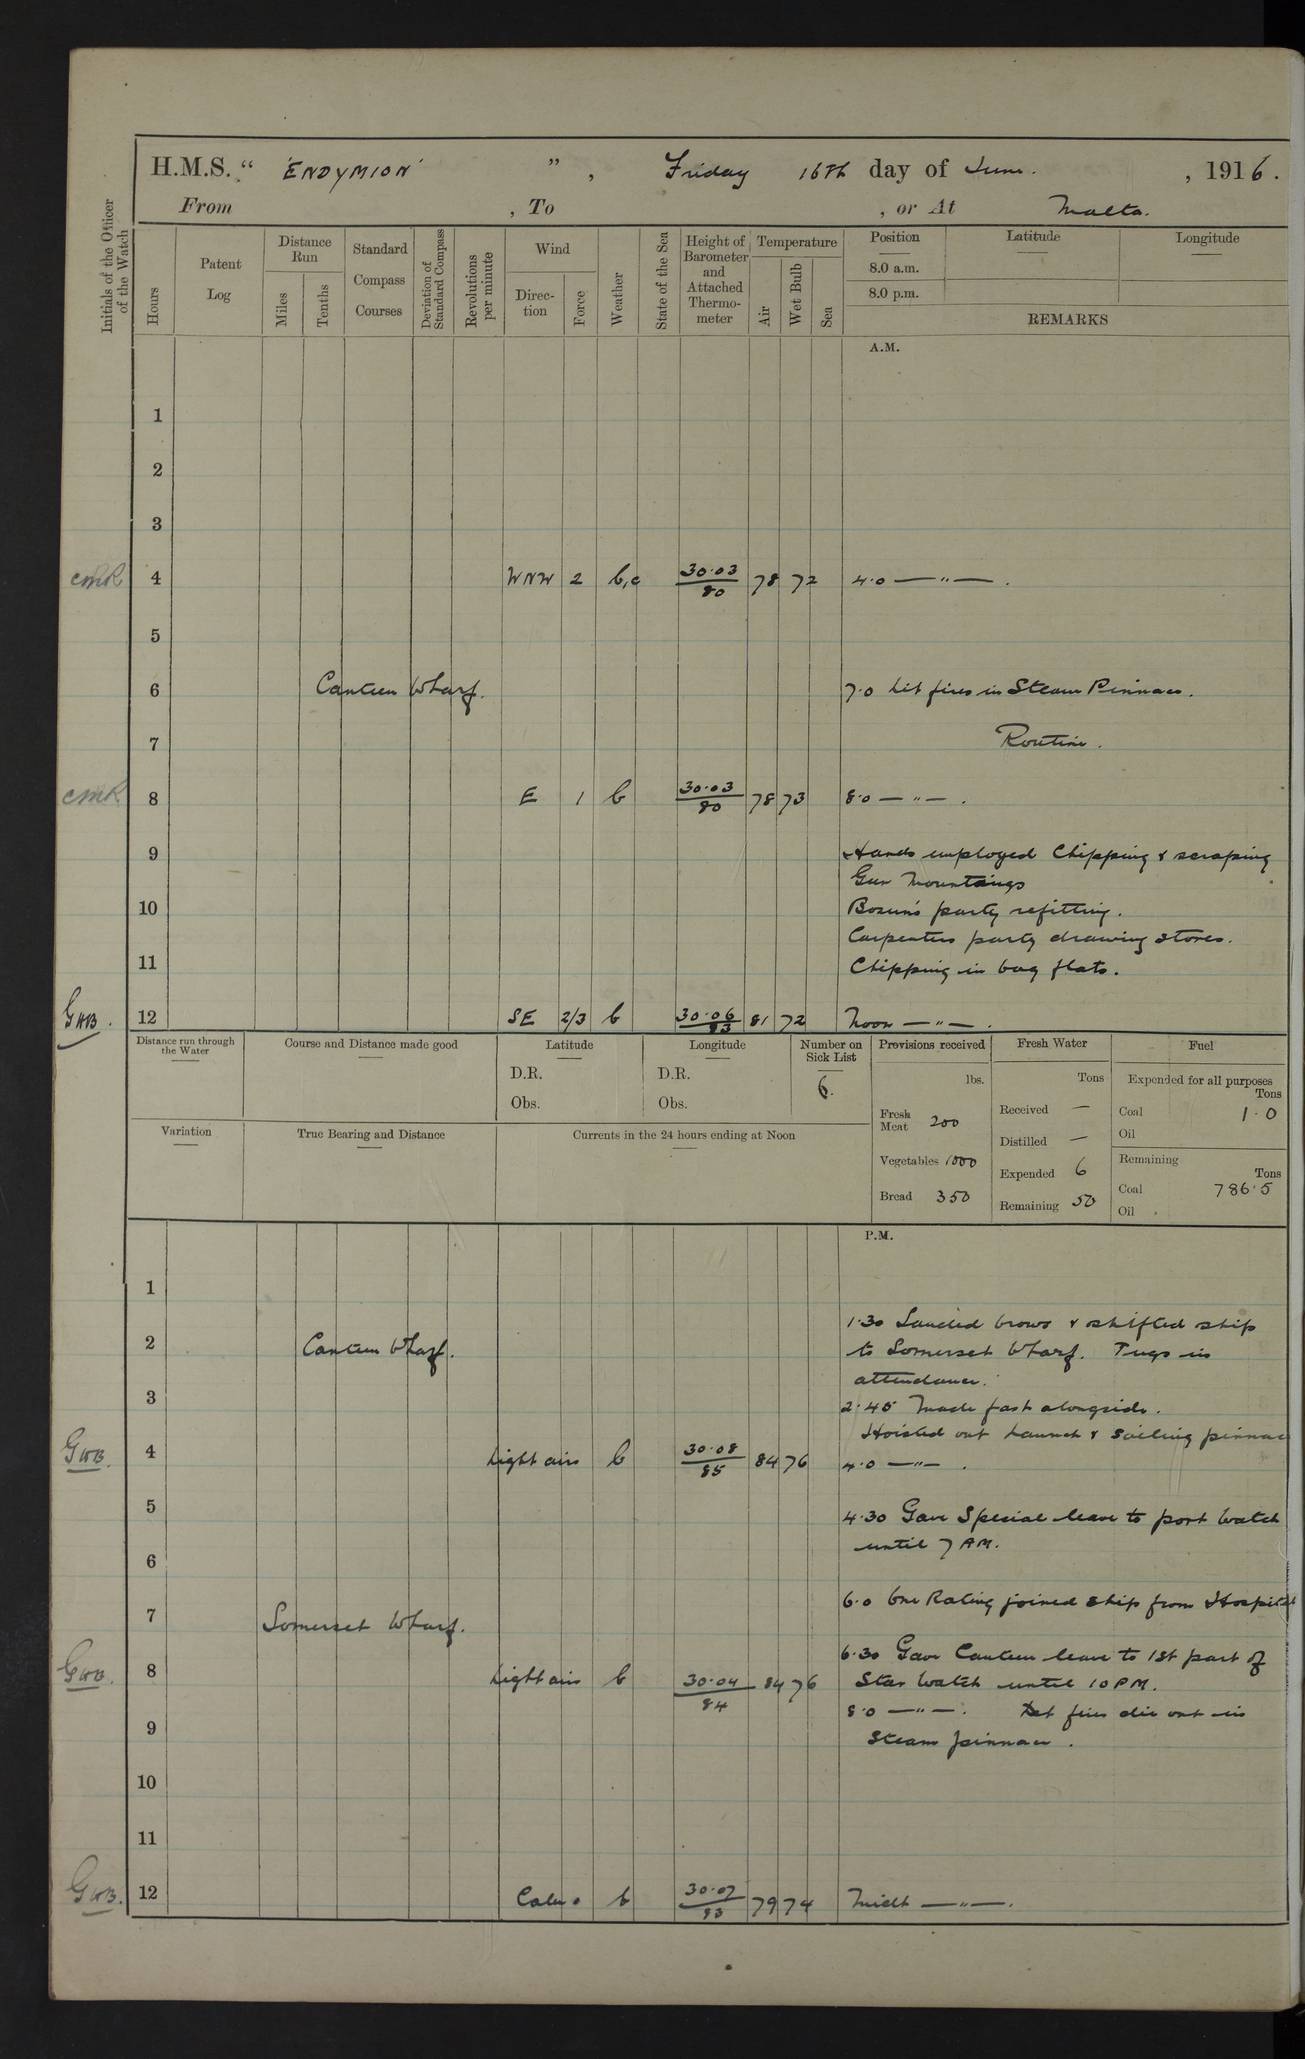 H.M.S. “ 'ENDYMION' ”, Friday 16th day of June. , 1916.
From , To , or At Malta.
Initials of the Officer of the Watch
Hours
Patent Log
Distance Run
Miles
Tenths
Standard Compass Courses
Deviation of Standard Compass
Revolutions per minute
Wind
Direction
Force
Weather
State of the Sea
Height of Barometer and Attached Thermometer
Temperature
Air
Wet Bulb
Sea
Position Latitude Longitude
8.0 a.m.
8.0 p.m.
REMARKS
A.M.
1
2
3
CMR 4 WNW 2 b,c 30.03/80 78 72 4.0 — " — .
5
6 Canteen Wharf. 7.0 Lit fires in Steam Pinnace.
7 Routine.
CMR 8 E 1 b 30.03/80 78 73 8.0 — " — .
9 Hands employed Chipping & scraping
Gun Mountings
10 Bosun's party refitting.
Carpenters party drawing stores.
11 Chipping in bag flats.
GWB. 12 SE 2/3 b 30.06/83 81 72 Noon — " — .
Distance run through the Water
Course and Distance made good
Latitude
D.R.
Obs.
Longitude
D.R.
Obs.
Number on Sick List
6.
Provisions received
lbs.
Fresh Meat 200
Vegetables 1000
Bread 350
Fresh Water
Tons
Received —
Distilled —
Expended 6
Remaining 50
Fuel
Expended for all purposes
Tons
Coal 1.0
Oil
Remaining
Tons
Coal 786.5
Oil
Variation
True Bearing and Distance
Currents in the 24 hours ending at Noon
P.M.
1
1.30 Landed brows & shifted ship
2 Canteen Wharf. to Somerset Wharf. Tugs in
attendance.
3 2.45 Made fast alongside.
Hoisted out Launch & Sailing pinnace
GWB. 4 Light airs b 30.08/85 84 76 4.0 — " — .
5 4.30 Gave Special leave to port Watch
until 7 AM.
6
7 Somerset Wharf. 6.0 One Rating joined ship from Hospital
6.30 Gave Canteen leave to 1st part of
GWB. 8 Light airs b 30.04/84 84 76 Star Watch until 10 PM.
8.0 — " — . Let fires die out in
9 Steam pinnace.
10
11
GWB. 12 Calm 0 b 30.07/83 79 74 Midt — " — .